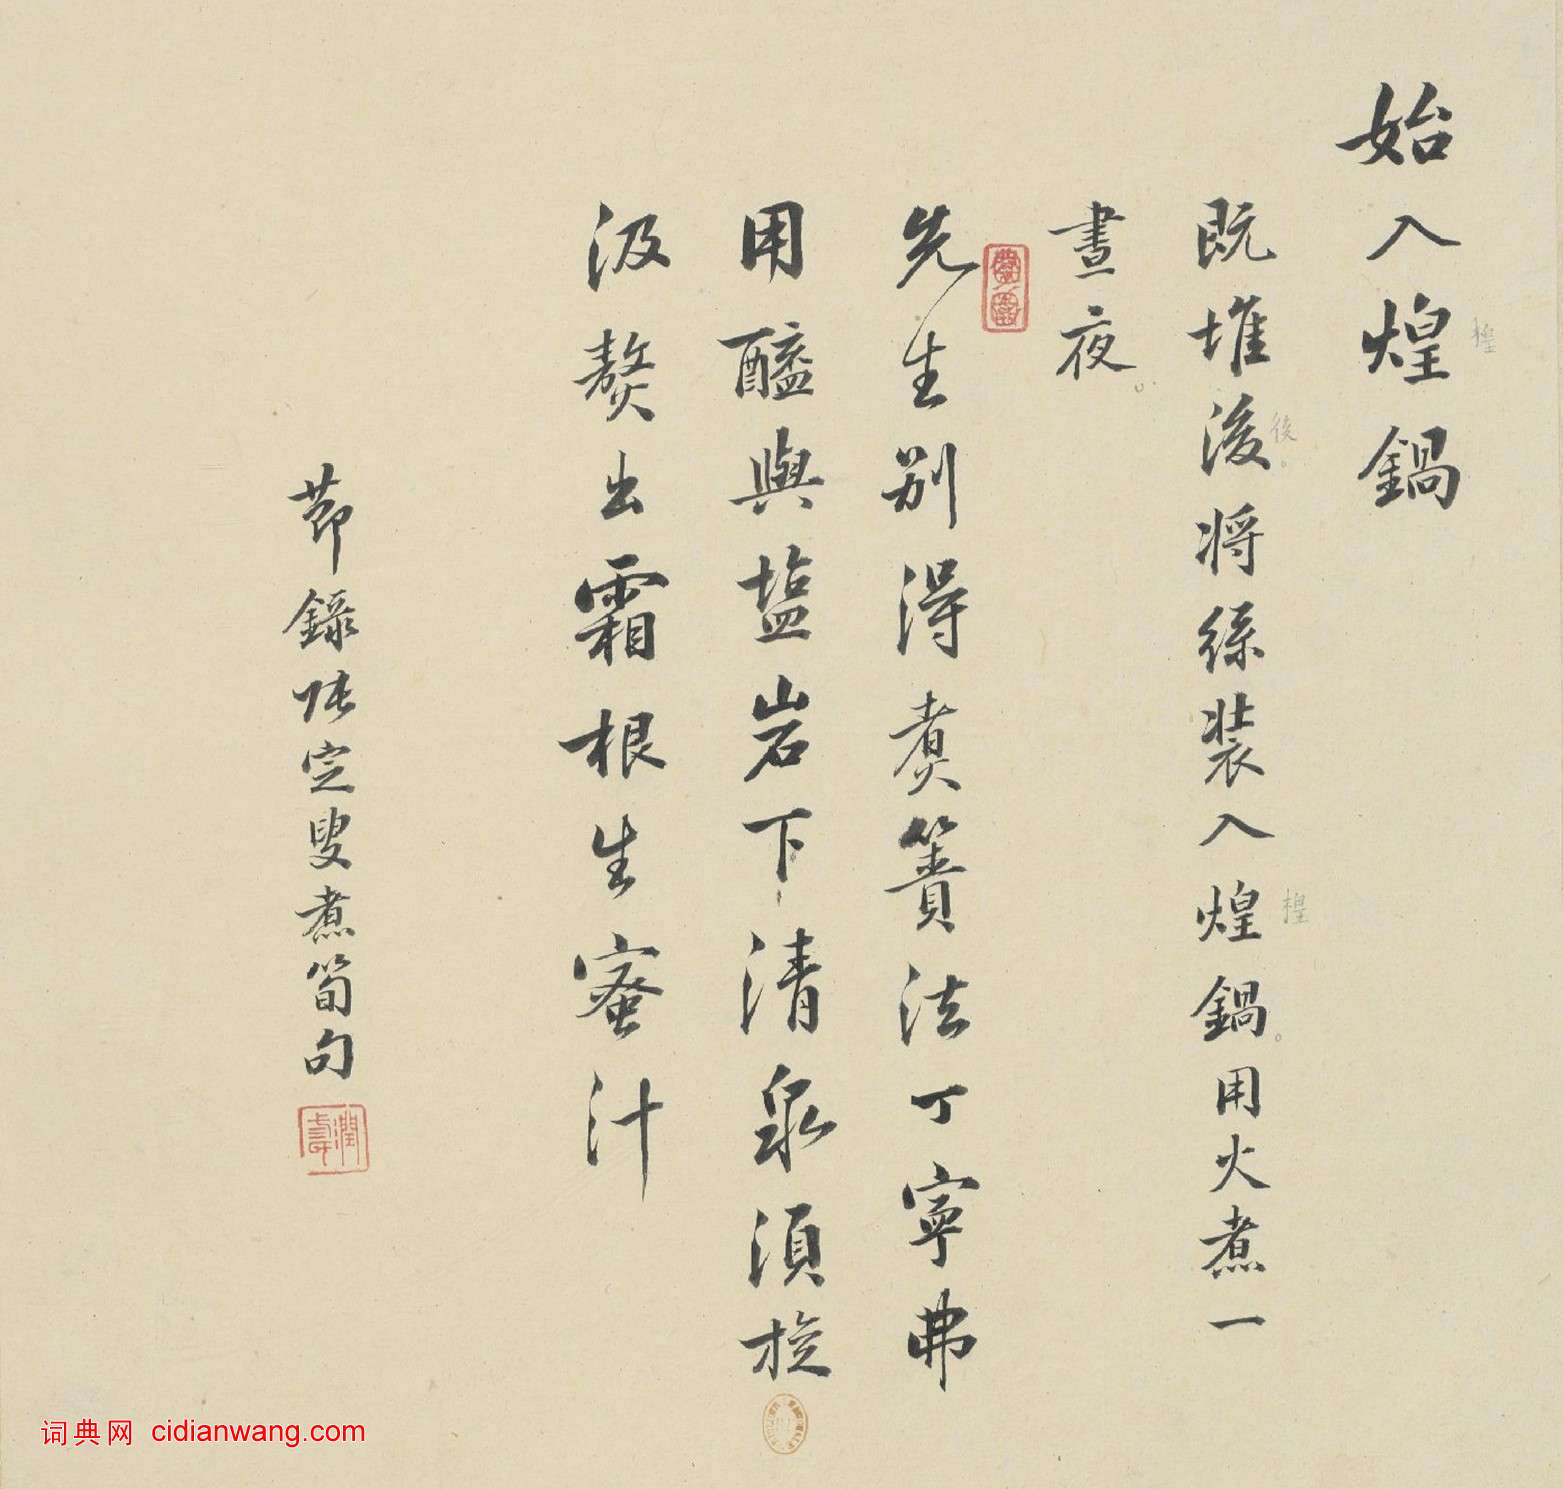 始入煌鍋
楻
既堆浚将絲装入煌鍋用火煮一
後
楻
晝夜
先生别得煑簀法丁寧弗
用醯與塩岩下清泉須旋
汲熬出霜根生蜜汁
節録張定叟煮筍句
詞典网 cidianwang.com